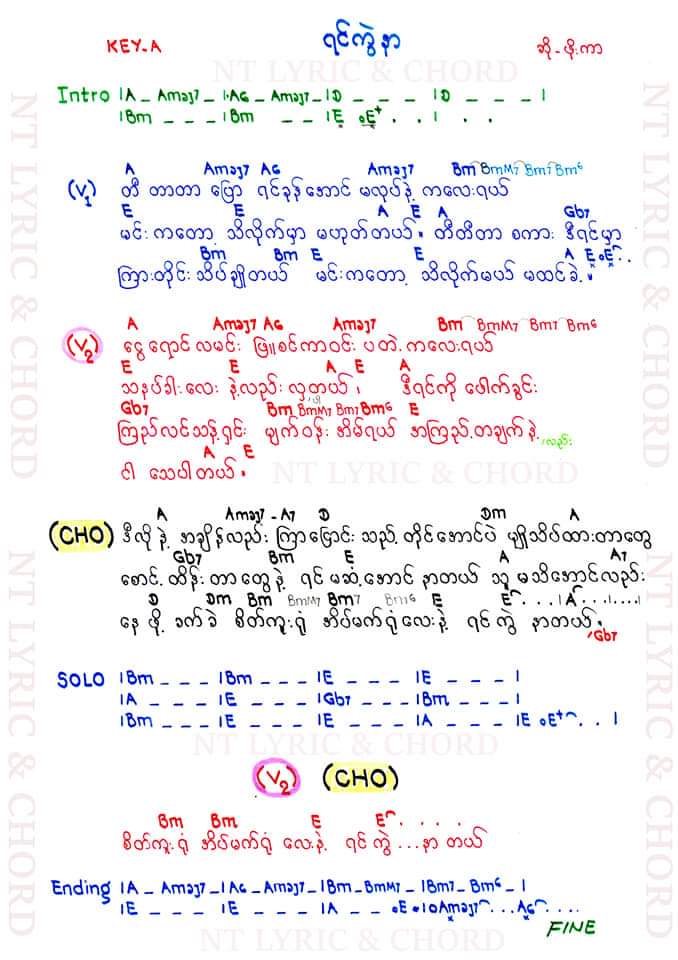 KEY-A
ရင်ကွဲနာ
ဆို-ဖိုးကာ
NT LYRIC & CHORD
Intro |A _ Amaj7 _ |A6 _ Amaj7 _ |D _ _ _ |D _ _ _ |
|Bm _ _ _ |Bm _ _ |E E+ . . | . .
A Amaj7 A6 Amaj7 Bm BmM7 Bm7 Bm6
(V1) တီ တာတာ ပြော ရင်ခုန်အောင် မလုပ်နဲ့ ကလေးရယ်
E E A E A Gb7
မင်းကတော့ သိလိုက်မှာ မဟုတ်တယ်။ တီတီတာ စကား ဒီရင်မှာ
Bm Bm E E A E E
ကြားတိုင်း သိပ်ချိုတယ် မင်းကတော့ သိလိုက်မယ် မထင်ခဲ့။
A Amaj7 A6 Amaj7 Bm BmM7 Bm7 Bm6
(V2) ငွေရောင်လမင်း ဖြူစင်ကာဝင်း ပတဲ့ ကလေးရယ်
E E A E A
သနပ်ခါးလေး နဲ့လည်း လှတယ်၊ ဒီရင်ကို ပေါက်ခွင်း
ပါ
Gb7 Bm BmM7 Bm7 Bm6 E
ကြည်လင်သန့်ရှင်း မျက်ဝန်း အိမ်ရယ် အကြည့်တချက်နဲ့
လည်း
A E
ငါ သေပါတယ်။
NT LYRIC & CHORD
A Amaj7 - A7 D Dm A
(CHO) ဒီလိုနဲ့ အချိန်လည်း ကြာမြောင်း သည့်တိုင်အောင်ပဲ မျိုသိပ်ထားတာတွေ
Gb7 Bm E A A7
စောင့်ထိန်းတာတွေနဲ့ ရင်မဆံ့အောင် နာတယ် သူ မသိအောင်လည်း
D Dm Bm BmM7 Bm7 Bm6 E E . . . . |A . . . | . . . .
နေဖို့ ခက်ခဲ စိတ်ကူးရုံ အိပ်မက်ရုံလေးနဲ့ ရင်ကွဲ နာတယ်။
Gb7
SOLO |Bm _ _ _ |Bm _ _ _ |E _ _ _ |E _ _ _ |
|A _ _ _ |E _ _ _ |Gb7 _ _ _ |Bm _ _ _ |
|Bm _ _ _ |E _ _ _ |E _ _ _ |A _ _ _ |E E+ . . |
NT LYRIC & CHORD
(V2) (CHO)
Bm Bm E E . . . .
စိတ်ကူးရုံ အိပ်မက်ရုံ လေးနဲ့ ရင်ကွဲ ...နာ တယ်
Ending |A _ Amaj7 _ |A6 _ Amaj7 _ |Bm _ BmM7 _ |Bm7 _ Bm6 _ |
|E _ _ _ |E _ _ _ |A _ _ E Amaj7 . . . A6 . . . .
FINE
NT LYRIC & CHORD
NT LYRIC & CHORD
NT LYRIC & CHORD
NT LYRIC & CHORD
NT LYRIC & CHORD